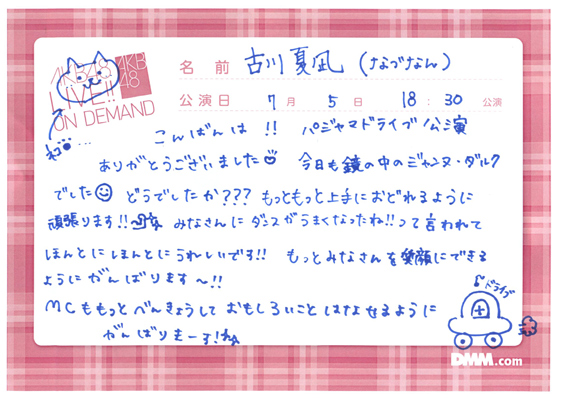 AKB48 LIVE!! ON DEMAND
AKB48
名前 古川夏凪 (なづなん)
公演日 7月 5日 18:30 公演
ねこ…
こんばんは!! パジャマドライブ公演
ありがとうございました 今日も鏡の中のジャンヌ・ダルク
でした どうでしたか??? もっともっと上手におどれるように
頑張ります!! みなさんにダンスがうまくなったね!!って言われて
ほんとにほんとにうれしいです!! もっとみなさんを笑顔にできる
ようにがんばります〜!!
MCももっとべんきょうしておもしろいことはなせるように
がんばりまーす!
♪ドライブ
DMM.com